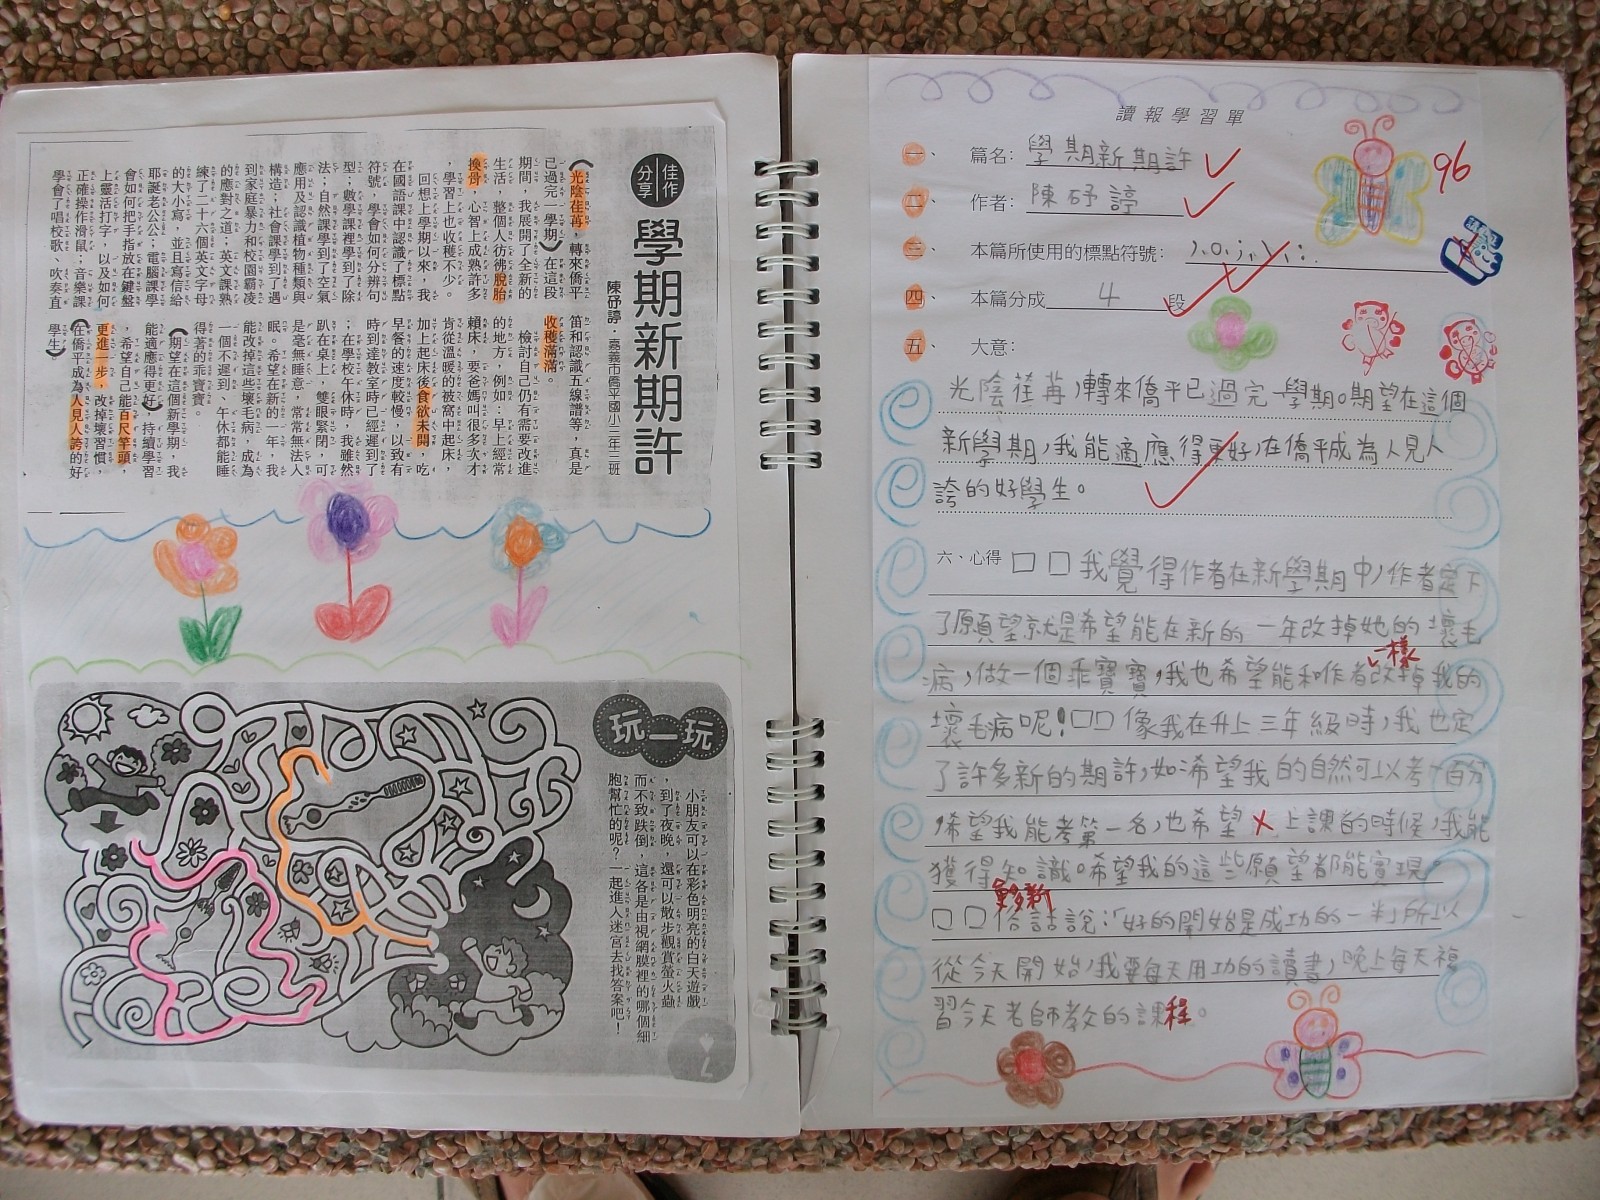 佳作分享
學期新期許
陳妤諄．嘉義市僑平國小三年三班
（光陰荏苒，轉來僑平
已過完一學期）在這段
期間，我展開了全新的
生活，整個人彷彿脫胎
換骨，心智上成熟許多
，學習上也收穫不少。
回想上學期以來，我
在國語課中認識了標點
符號，學會如何分辨句
型；數學課裡學到了除
法；自然課學到了空氣
應用及認識植物種類與
構造；社會課學到了遇
到家庭暴力和校園霸凌
的應對之道；英文課熟
練了二十六個英文字母
的大小寫，並且寫信給
耶誕老公公；電腦課學
會如何把手指放在鍵盤
上靈活打字，以及如何
正確操作滑鼠；音樂課
學會了唱校歌、吹奏直
笛和認識五線譜等，真是
收穫滿滿。
檢討自己仍有需要改進
的地方，例如：早上經常
賴床，要爸媽叫很多次才
肯從溫暖的被窩中起床，
加上起床後食欲未開，吃
早餐的速度較慢，以致有
時到達教室時已經遲到了
；在學校午休時，我雖然
趴在桌上，雙眼緊閉，可
是毫無睡意，常常無法入
眠。希望在新的一年，我
能改掉這些壞毛病，成為
一個不遲到、午休都能睡
得著的乖寶寶。
（期望在這個新學期，我
能適應得更好），持續學習
，希望自己能百尺竿頭，
更進一步，改掉壞習慣，
（在僑平成為人見人誇的好
學生）
玩一玩
小朋友可以在彩色明亮的白天遊戲
，到了夜晚，還可以散步觀賞螢火蟲
而不致跌倒，這各是由視網膜裡的哪個細
胞幫忙的呢？一起進入迷宮去找答案吧！
讀報學習單
96
一、篇名：學期新期許
二、作者：陳妤諄
三、本篇所使用的標點符號：，。；、：
四、本篇分成 4 段
五、大意：
光陰荏苒，轉來僑平已過完一學期。期望在這個
新學期，我能適應得更好，在僑平成為人見人
誇的好學生。
六、心得 □□我覺得作者在新學期中，作者定下
了願望就是希望能在新的一年改掉她的壞毛
病，做一個乖寶寶，我也希望能和作者一樣改掉我的
壞毛病呢！□□像我在升上三年級時，我也定
了許多新的期許，如：希望我的自然可以考一百分
，希望我能考第一名，也希望上課的時候，我能
獲得知識。希望我的這些願望都能實現。
□□俗話說：「好的開始是成功的一半」所以
從今天開始，我要每天用功的讀書，晚上每天複
習今天老師教的課程。